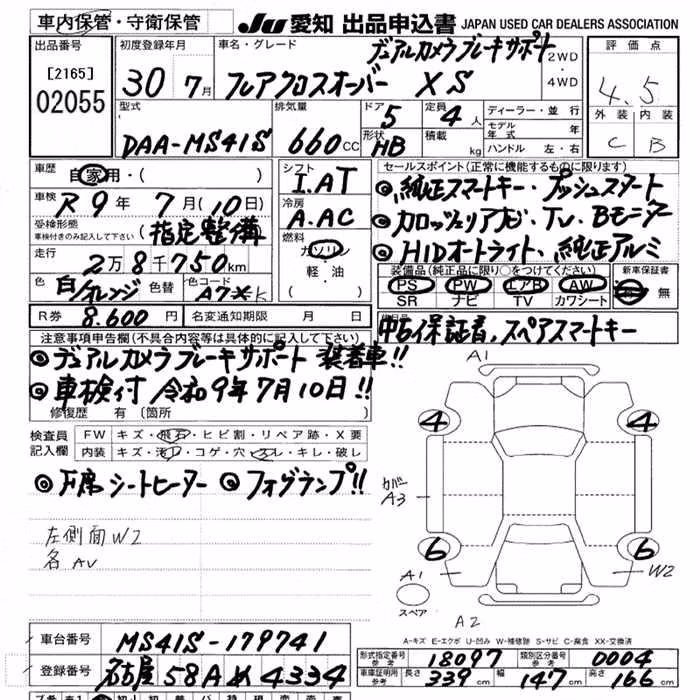 車内保管・守衛保管
JU 愛知 出品申込書 JAPAN USED CAR DEALERS ASSOCIATION
出品番号 初度登録年月 車名・グレード デュアルカメラブレーキサポート 2WD・4WD 評価点
[2165] 30年7月 フレアクロスオーバー XS 4.5
02055
型式 排気量 ドア 5 定員 4人 ディーラー・並行 外装 内装
モデル年式 年
DAA-MS41S 660cc 形状 HB 積載 kg ハンドル 左・右 C B
車歴 自家用・( ) シフト I.AT セールスポイント(正常に機能するものに限ります)
車検 R9年7月(10日) ◎純正スマートキー・プッシュスタート
受検形態 車検付きのみ記入して下さい (指定整備) 冷房 A.AC ◎カロッツェリアナビ・TV・Bモニター
走行 2万8千750km 燃料 ガソリン・軽油 ◎HIDオートライト、純正アルミ
装備品(純正品に限り○をつけてください) 新車保証書
色 白/オレンジ 色替 色コード PS PW エアB AW 有・無
SR ナビ TV カワシート
R券 8.600円 名変通知期限 月 日
中古保証書、スペアスマートキー
注意事項申告欄(不具合内容等は具体的に記入して下さい)
◎デュアルカメラブレーキサポート装着車!!
◎車検付 令和9年7月10日!!
修復歴 有 〔箇所
検査員記入欄 FW キズ・飛石・ヒビ割・リペア跡・X要
内装 キズ・汚レ・コゲ・穴・スレ・キレ・破レ
◎F席シートヒーター ◎フォグランプ!!
左側面W2
各AV
A1
4 4
カバー
A3
6 6
A1 W2
スペア
A2
A-キズ E-エクボ U-凹み W-補修跡 S-サビ C-腐食 XX-交換済
車台番号 MS41S-179741
登録番号 名古屋 58A め 4334
形式指定番号 参考 18097 類別区分番号 参考 0004
車庫証明用 参考 長さ 339cm 幅 147cm 高さ 166cm